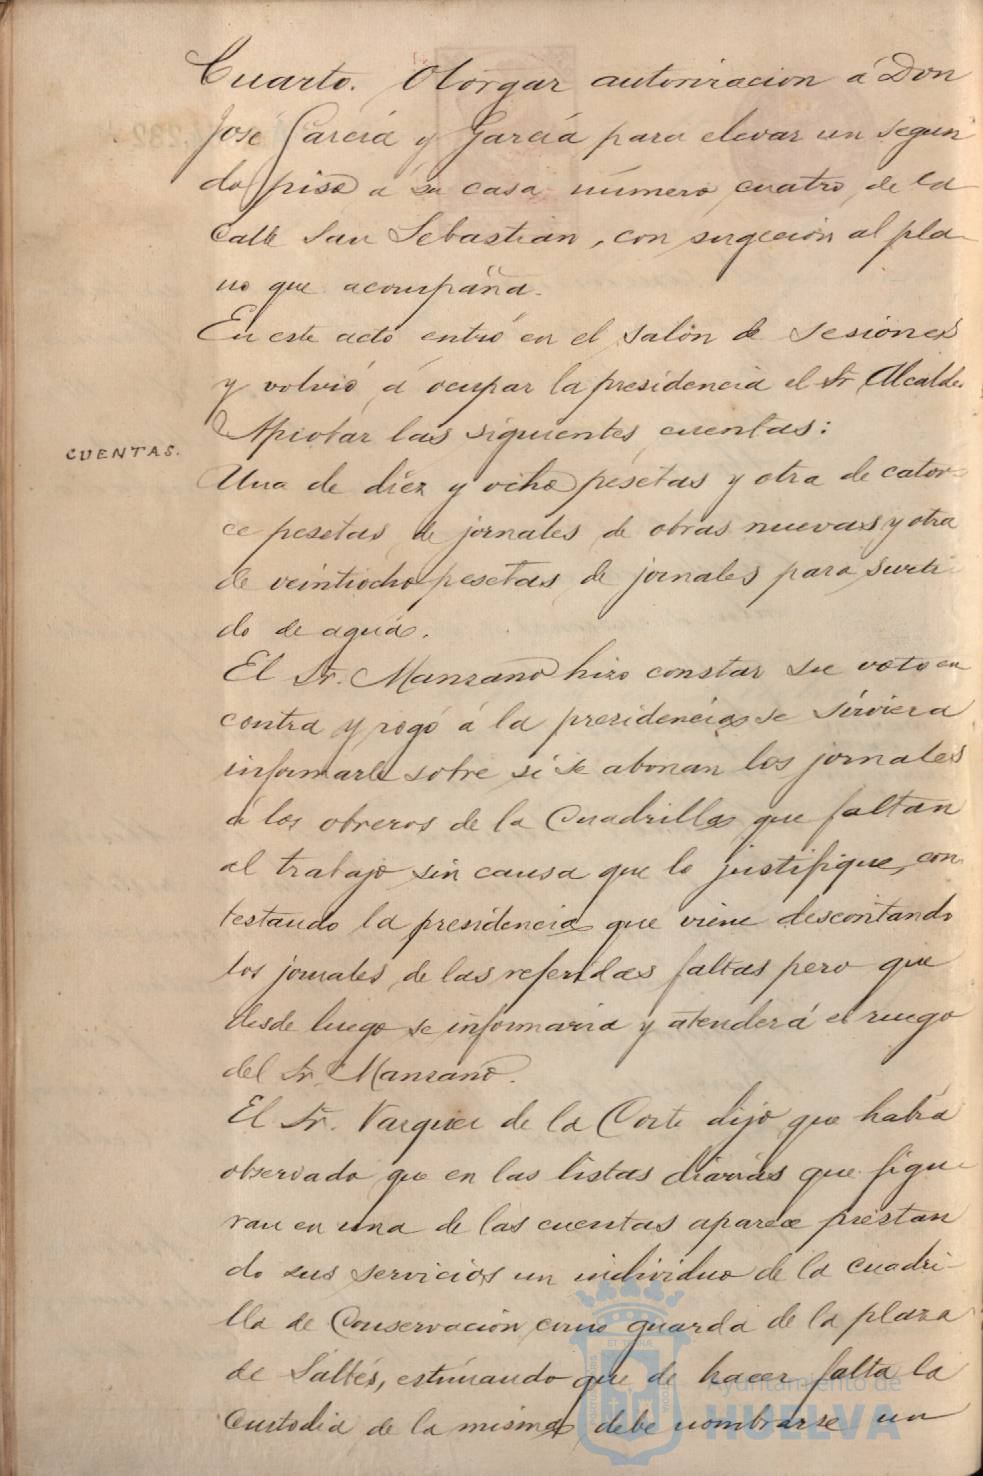 Cuarto. Otorgar autorizacion á Don
José García y García para elevar un segun
do piso á su casa número cuatro de la
Calle San Sebastian, con sugeción al pla-
no que acompaña.
En este acto entró en el salón de sesiones
y volvió á ocupar la presidencia el Sr Alcalde.
Aprobar las siguientes cuentas:
CUENTAS.
Una de diez y ocho pesetas y otra de cator-
ce pesetas de jornales de obras nuevas y otra
de veintiocho pesetas de jornales para surti-
do de aguas.
El Sr. Manzano hizo constar su voto en
contra y rogó á la presidencia se sirviera
informarle sobre si se abonan los jornales
á los obreros de la Cuadrilla que faltan
al trabajo sin causa que lo justifique, con
testando la presidencia que viene descontando
los jornales de las referidas faltas pero que
desde luego se informaria y atenderá el ruego
del Sr. Manzano.
El Sr. Vazquez de la Corte dijo que habia
observado que en las listas diarias que figu-
ran en una de las cuentas aparece prestan
do sus servicios un individuo de la cuadri-
lla de Conservación como guarda de la plaza
de Saltés, estimando que de hacer falta la
Custodia de la misma debe nombrarse un
Ayuntamiento de
HUELVA